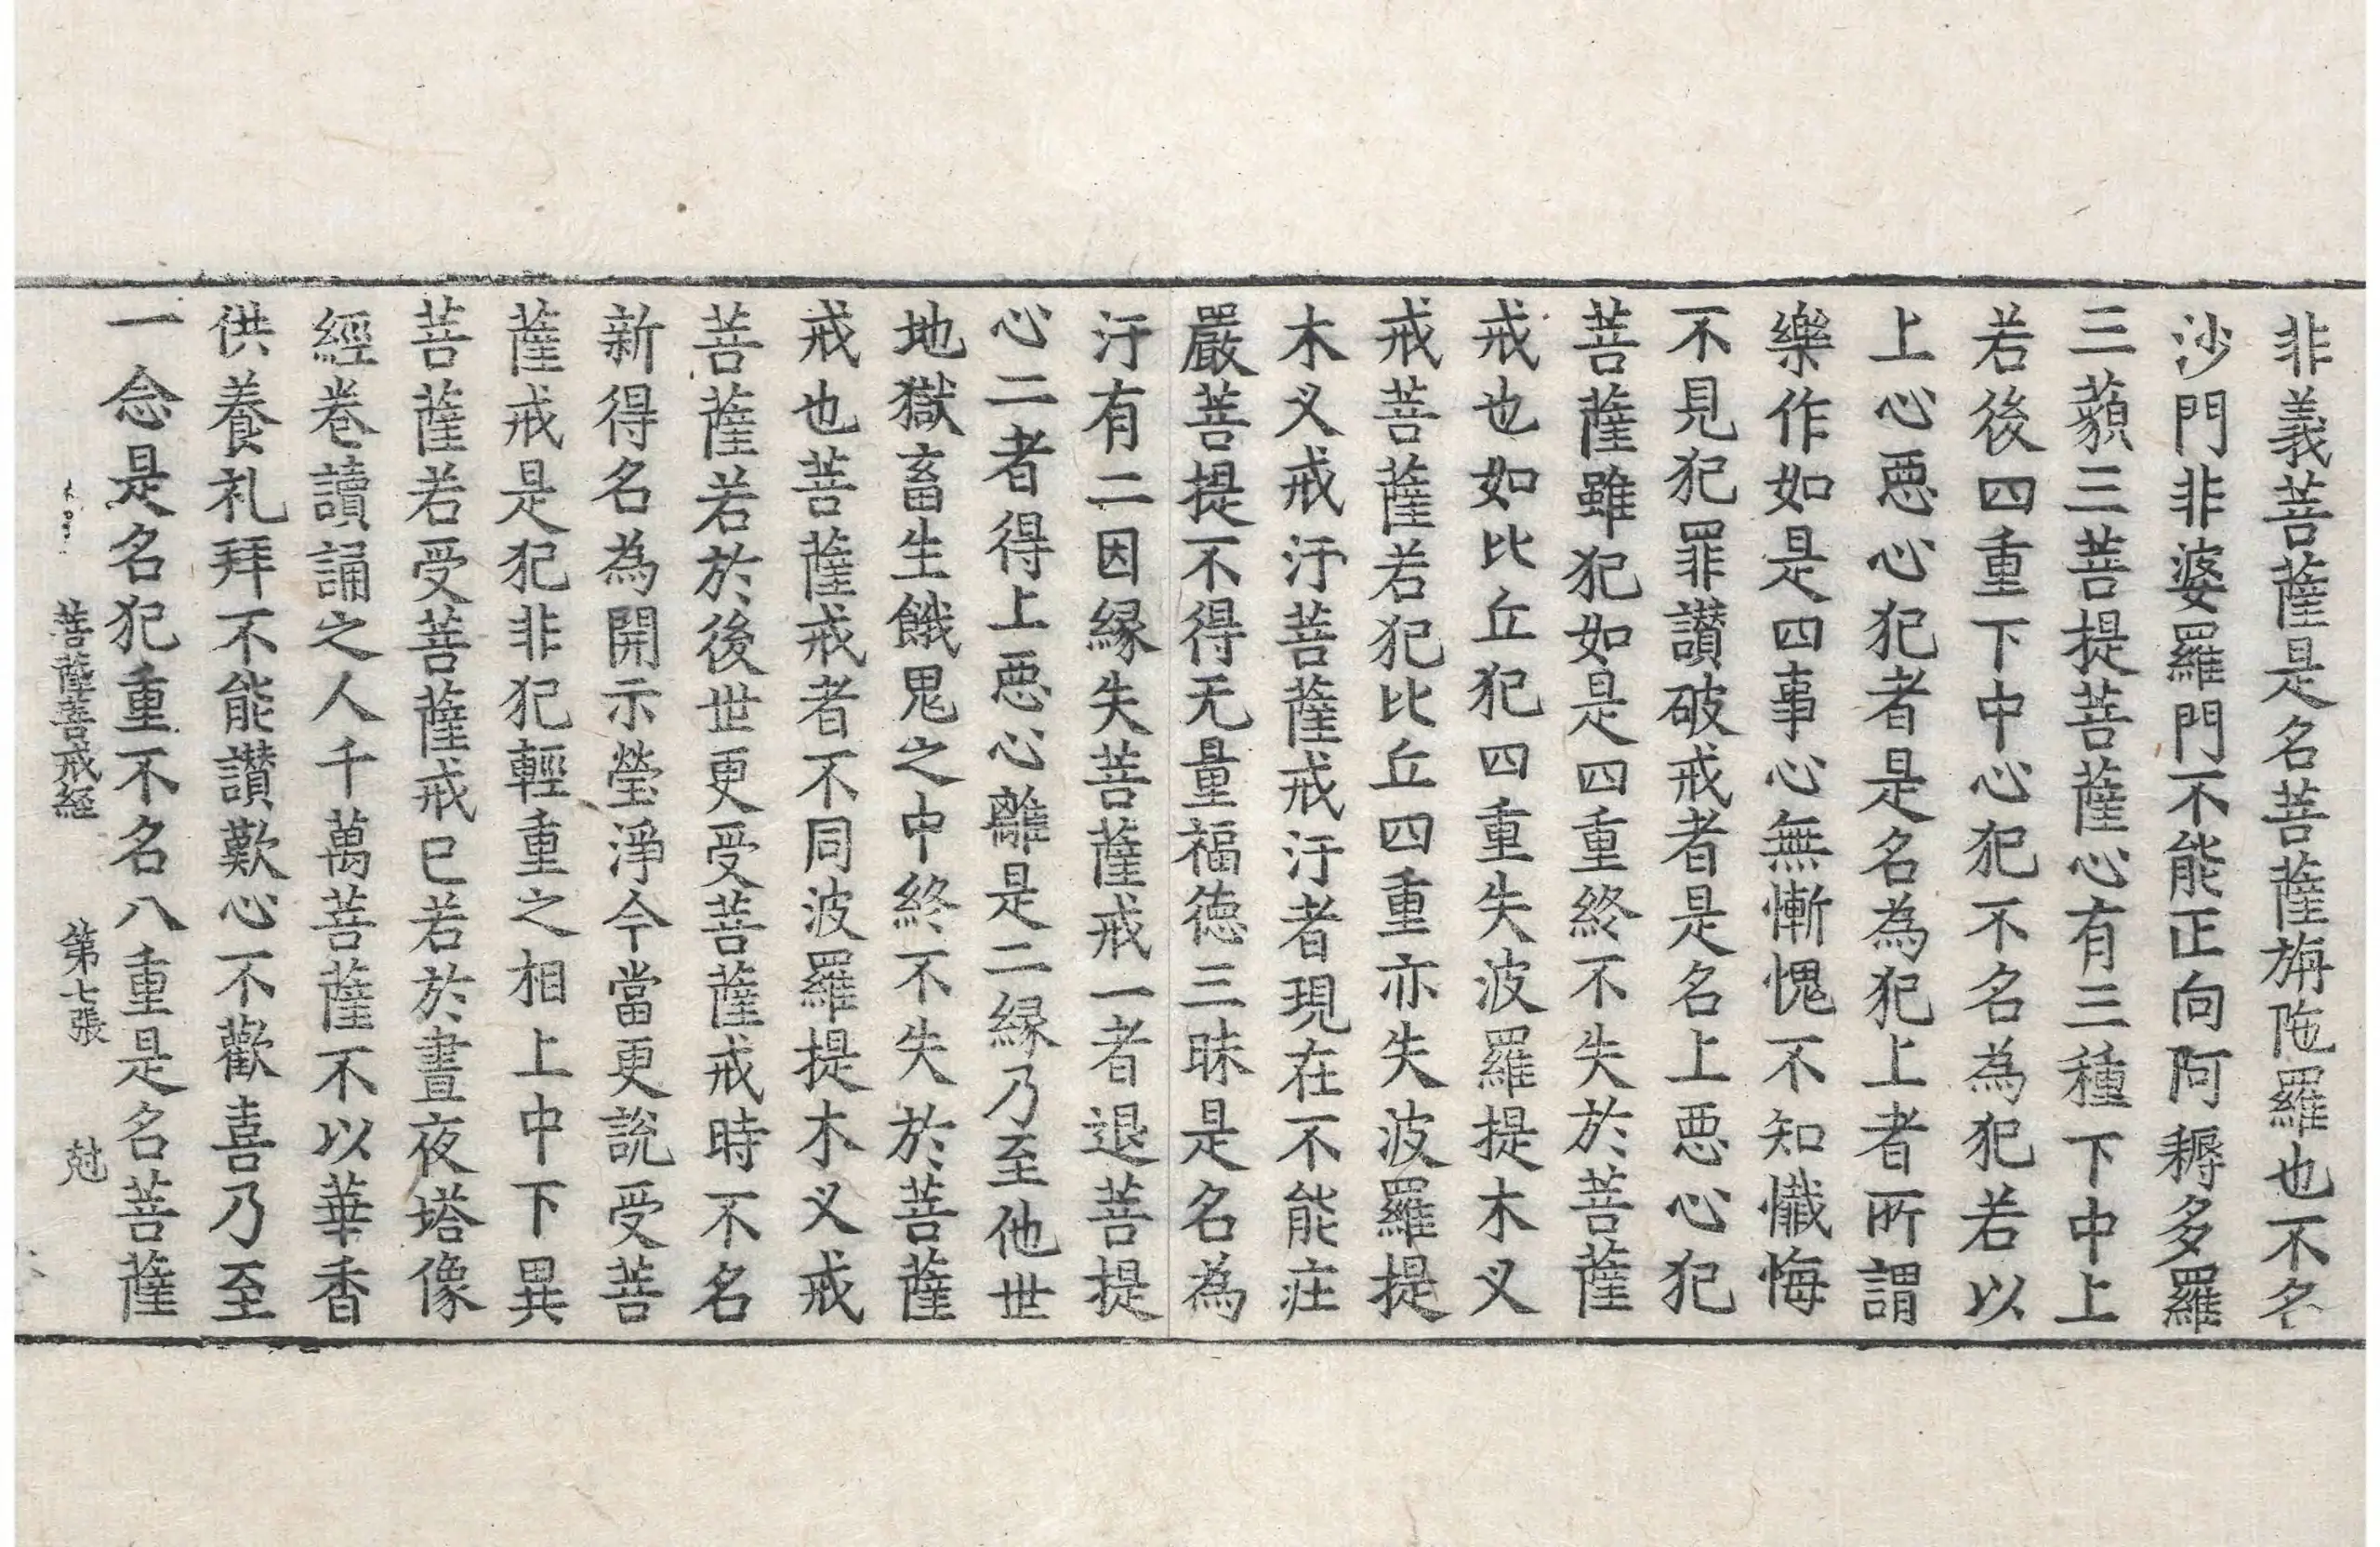 非義菩薩是名菩薩旃陁羅也不名
沙門非婆羅門不能正向阿耨多羅
三藐三菩提菩薩心有三種下中上
若後四重下中心犯不名為犯若以
上心惡心犯者是名為犯上者所謂
樂作如是四事心無慚愧不知懺悔
不見犯罪讃破戒者是名上惡心犯
菩薩雖犯如是四重終不失於菩薩
戒也如比丘犯四重失波羅提木叉
戒菩薩若犯比丘四重亦失波羅提
木叉戒汙菩薩戒汙者現在不能庄
嚴菩提不得无量福德三昧是名為
汙有二因縁失菩薩戒一者退菩提
心二者得上惡心離是二縁乃至他世
地獄畜生餓鬼之中終不失於菩薩
戒也菩薩戒者不同波羅提木叉戒
菩薩若於後世更受菩薩戒時不名
新得名為開示瑩淨今當更說受菩
薩戒是犯非犯輕重之相上中下異
菩薩若受菩薩戒已若於晝夜塔像
經卷讀誦之人千萬菩薩不以華香
供養礼拜不能讃歎心不歡喜乃至
一念是名犯重不名八重是名菩薩
菩薩善戒經 第七張